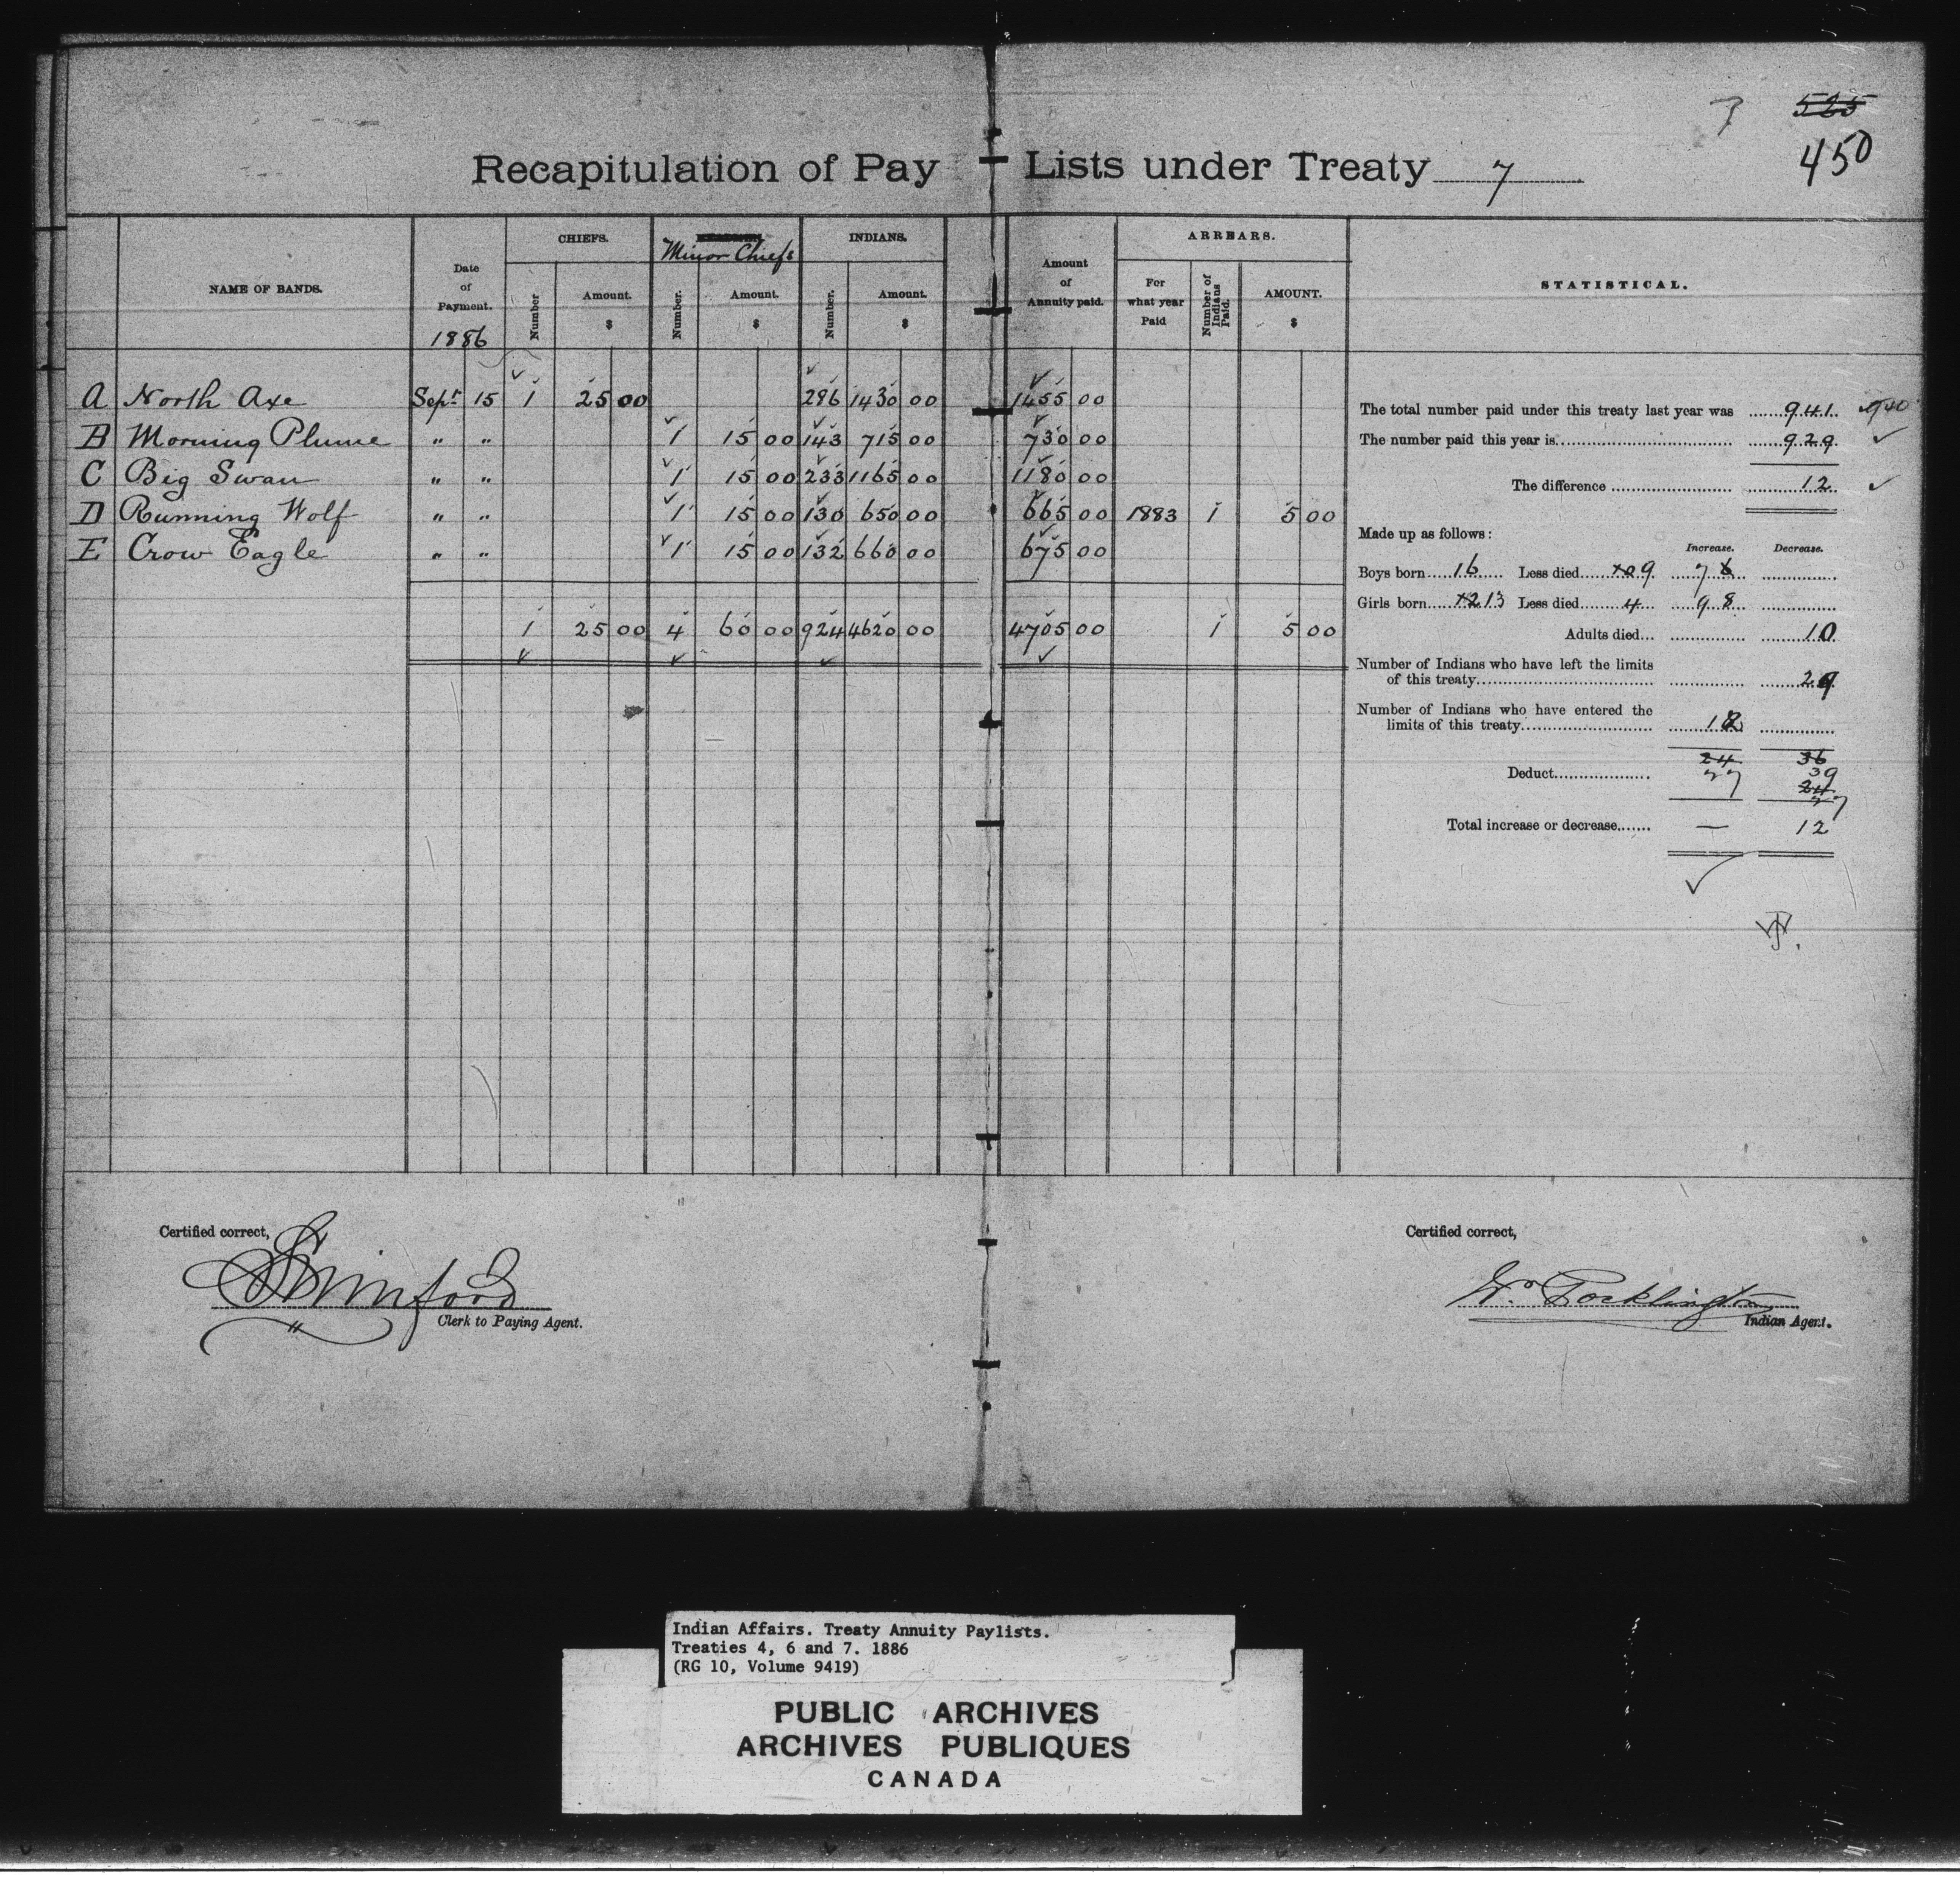 7 525
450
Recapitulation of Pay Lists under Treaty 7
NAME OF BANDS. Date of Payment. 1886 CHIEFS. Number Amount. $ Minor Chiefs Number. Amount. $ INDIANS. Number. Amount. $ Amount of Annuity paid. ARREARS. For what year Paid Number of Indians Paid. AMOUNT. $ STATISTICAL.
A North Axe Sept 15 1 25 00 286 1430 00 1455 00
B Morning Plume " " 1 15 00 143 715 00 730 00
C Big Swan " " 1 15 00 233 1165 00 1180 00
D Running Wolf " " 1 15 00 130 650 00 665 00 1883 1 5 00
E Crow Eagle " " 1 15 00 132 660 00 675 00
1 25 00 4 60 00 924 4620 00 4705 00 1 5 00
The total number paid under this treaty last year was 941 940
The number paid this year is 929
The difference 12
Made up as follows:
Increase. Decrease.
Boys born 16 Less died 9 7
Girls born 13 Less died 4 9
Adults died... 10
Number of Indians who have left the limits
of this treaty 29
Number of Indians who have entered the
limits of this treaty 1
24 36
Deduct 39
24
Total increase or decrease — 12
Certified correct,
Clerk to Paying Agent.
Certified correct,
W. Pocklington
Indian Agent.
Indian Affairs. Treaty Annuity Paylists.
Treaties 4, 6 and 7. 1886
(RG 10, Volume 9419)
PUBLIC ARCHIVES
ARCHIVES PUBLIQUES
CANADA